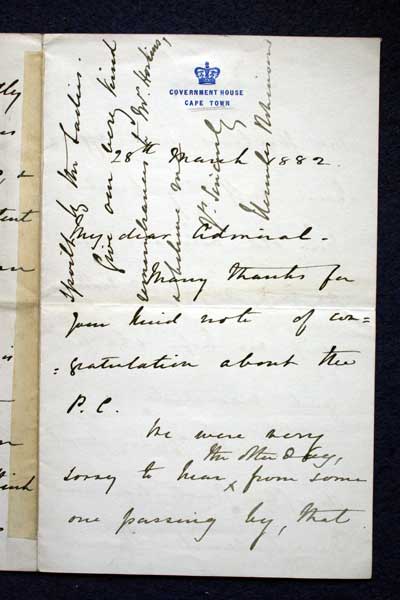 GOVERNMENT HOUSE
CAPE TOWN
28th March 1882.
My dear Admiral.
Many thanks for
your kind note of con=
=gratulation about the
P.C.
We were very
the other day,
sorry to hear ^ from some
one passing by, that
by the ladies.
Give our very kind
remembrances to Mrs Hoskins,
& believe me
Yrs Sincerely
Hercules Robinson